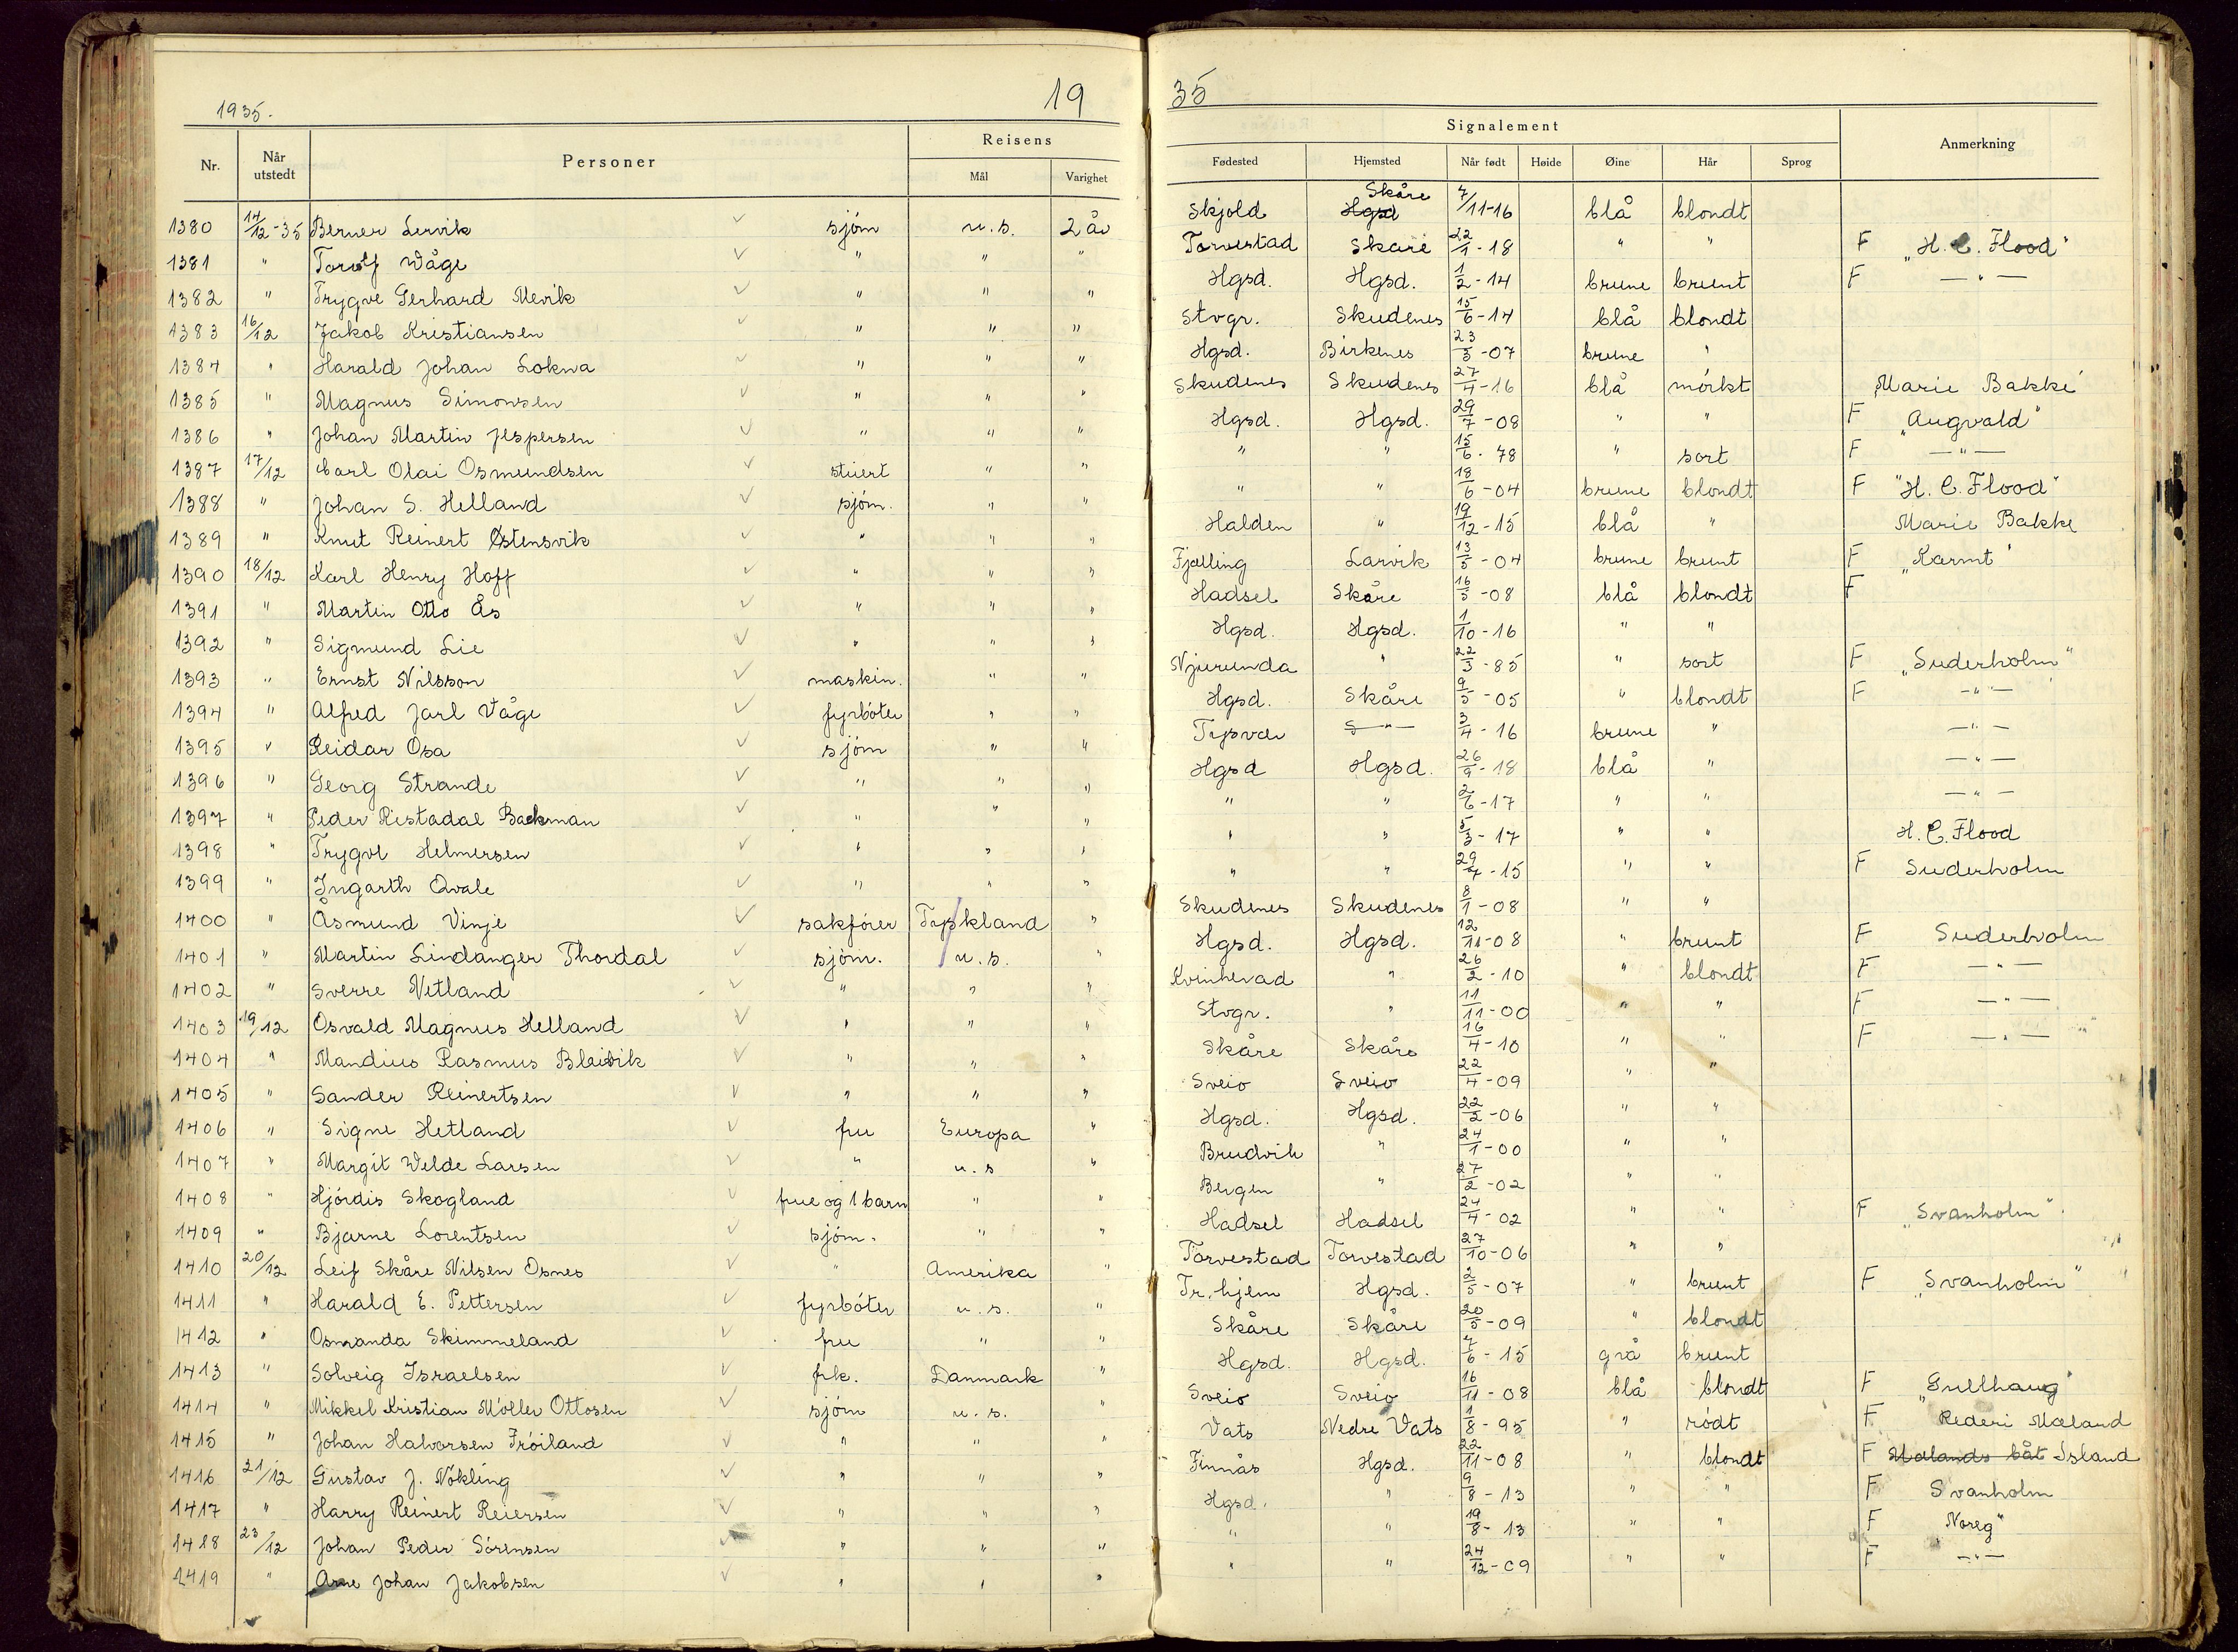 1935. 19 35
Signalement
Reisens
Nr. Når utstedt Personer Mål Varighet Fødested Hjemsted Når født Høide Øine Hår Sprog Anmerkning
Skåre
1380 14/12-35 Berner Lervik sjøm u.s. 2 år Skjold Hgsd 7/11-16 blå blondt
1381 " Torolf Wåge " " " Torvestad Skåre 22/1-18 " " F „H. C. Flood"
1382 " Trygve Gerhard Mevik " " " Hgsd. Hgsd. 1/2-14 brune brunt F — " —
1383 16/12 Jakob Kristiansen " " " Stvgr. Skudenes 15/6-14 blå blondt
1384 " Harald Johan Lokna " " " Hgsd. Birkenes 23/3-07 brune "
1385 " Magnus Simonsen " " " Skudenes Skudenes 27/4-16 blå mørkt „Marie Bakke"
1386 " Johan Martin Jespersen " " " Hgsd. Hgsd. 29/7-08 " " F „Augvald"
1387 17/12 Carl Olai Osmundsen stuert " " " " 15/6-78 " sort F — " —
1388 " Johan S. Helland sjøm. " " " " 18/6-04 brune blondt F "H. C. Flood"
1389 " Knut Reinert Østensvik " " " Halden " 19/12-15 blå " Marie Bakke
1390 18/12 Karl Henry Hoff " " " Fjælling Larvik 13/5-04 brune brunt F „Karmt"
1391 " Martin Otto Ås " " " Hadsel Skåre 16/5-08 blå blondt F
1392 " Sigmund Lie " " " Hgsd. Hgsd. 1/10-16 " "
1393 " Ernst Nilsson maskin. " " Njurunda " 22/3-85 " sort F „Suderholm"
1394 " Alfred Jarl Våge fyrbøter " " Hgsd. Skåre 9/5-05 " blondt F — " —
1395 " Reidar Osa sjøm " " Tysvær S — " — 3/4-16 brune " — " —
1396 " Georg Strande " " " Hgsd Hgsd. 26/9-18 blå " — " —
1397 " Peder Ristadal Backman " " " " " 2/6-17 " " — " —
1398 " Trygve Helmersen " " " " " 5/3-17 " " H. C. Flood
1399 " Ingarth Qvale " " " " " 29/4-15 " " F Suderholm
1400 " Åsmund Vinje sakfører Tyskland " Skudenes Skudenes 8/1-08 " "
1401 " Martin Lindanger Thordal sjøm. u.s. " Hgsd. Hgsd. 12/11-08 " brunt F Suderholm
1402 " Sverre Vetland " " " Kvinherad " 26/2-10 " blondt F — " —
1403 19/12 Osvald Magnus Helland " " " Stvgr. " 11/11-00 " " F — " —
1404 " Mandius Rasmus Bleivik " " " Skåre Skåre 16/4-10 " " F — " —
1405 " Sander Reinertsen " " " Sveio Sveio 22/4-09 " "
1406 " Signe Hetland fru Europa " Hgsd. Hgsd. 22/2-06 " "
1407 " Margit Welde Larsen " u.s " Brudvik " 24/1-00 " "
1408 " Hjørdis Skogland frue og 1 barn " " Bergen " 27/2-02 " "
1409 " Bjarne Lorentsen sjøm. " " Hadsel Hadsel 24/4-02 " " F „Svanholm"
1410 20/12 Leif Skåre Nilsen Osnes " Amerika " Torvestad Torvestad 27/10-06 " "
1411 " Harald E. Pettersen fyrbøter u.s. " Tr.hjem Hgsd. 2/5-07 " brunt F „Svanholm"
1412 " Osmanda Skimmeland fru " " Skåre Skåre 20/5-09 " blondt
1413 " Solveig Israelsen frk. Danmark " Hgsd. Hgsd. 7/6-15 grå brunt
1414 " Mikkel Kristian Møller Ottosen sjøm u.s. " Sveio Sveio 16/11-08 blå blondt F „Gullhaug"
1415 " Johan Halvorsen Frøiland " " " Vats Nedre Vats 1/8-95 " rødt F Rederi Mæland
1416 21/12 Gustav J. Nøkling " " " Finnås Hgsd. 22/11-08 " blondt F Mælands båt Island
1417 " Harry Reinert Reiersen " " " Hgsd. " 9/8-13 " " F Svanholm
1418 23/12 Johan Peder Sørensen " " " " " 19/8-13 " " F „Noreg"
1419 " Arne Johan Jakobsen " " " " " 24/12-09 " " F — " —